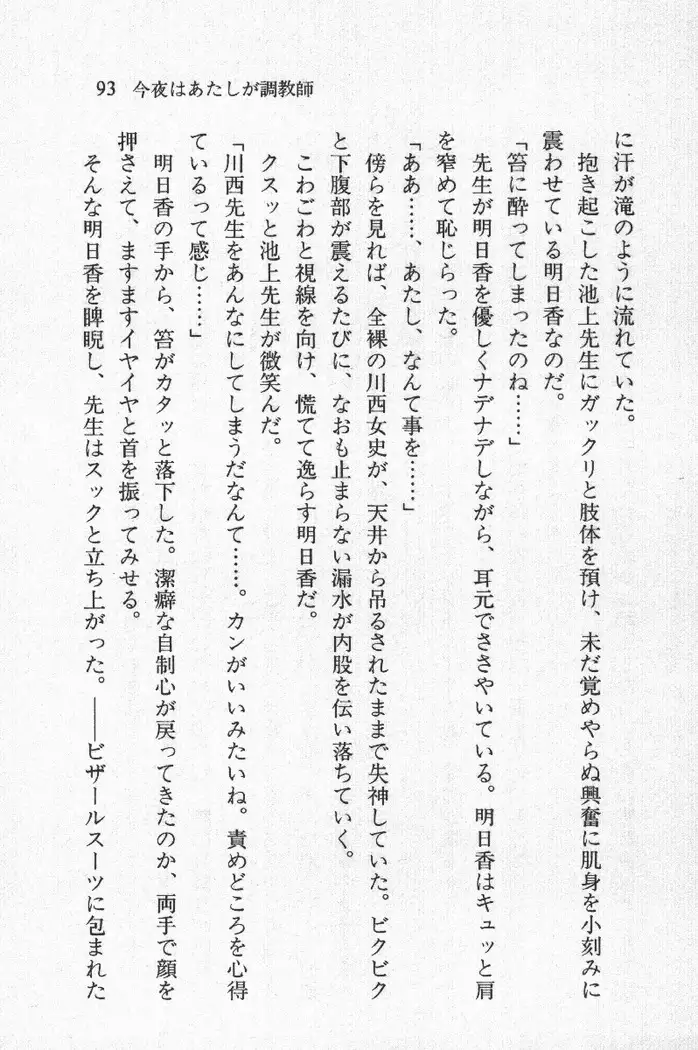 93 今夜はあたしが調教師
に汗が滝のように流れていた。
抱き起こした池上先生にガックリと肢体を預け、未だ覚めやらぬ興奮に肌身を小刻みに
震わせている明日香なのだ。
「笞に酔ってしまったのね……」
先生が明日香を優しくナデナデしながら、耳元でささやいている。明日香はキュッと肩
を窄めて恥じらった。
「ああ……、あたし、なんて事を……」
傍らを見れば、全裸の川西女史が、天井から吊るされたままで失神していた。ビクビク
と下腹部が震えるたびに、なおも止まらない漏水が内股を伝い落ちていく。
こわごわと視線を向け、慌てて逸らす明日香だ。
クスッと池上先生が微笑んだ。
「川西先生をあんなにしてしまうだなんて……。カンがいいみたいね。責めどころを心得
ているって感じ……」
明日香の手から、笞がカタッと落下した。潔癖な自制心が戻ってきたのか、両手で顔を
押さえて、ますますイヤイヤと首を振ってみせる。
そんな明日香を睥睨し、先生はスックと立ち上がった。――ビザールスーツに包まれた